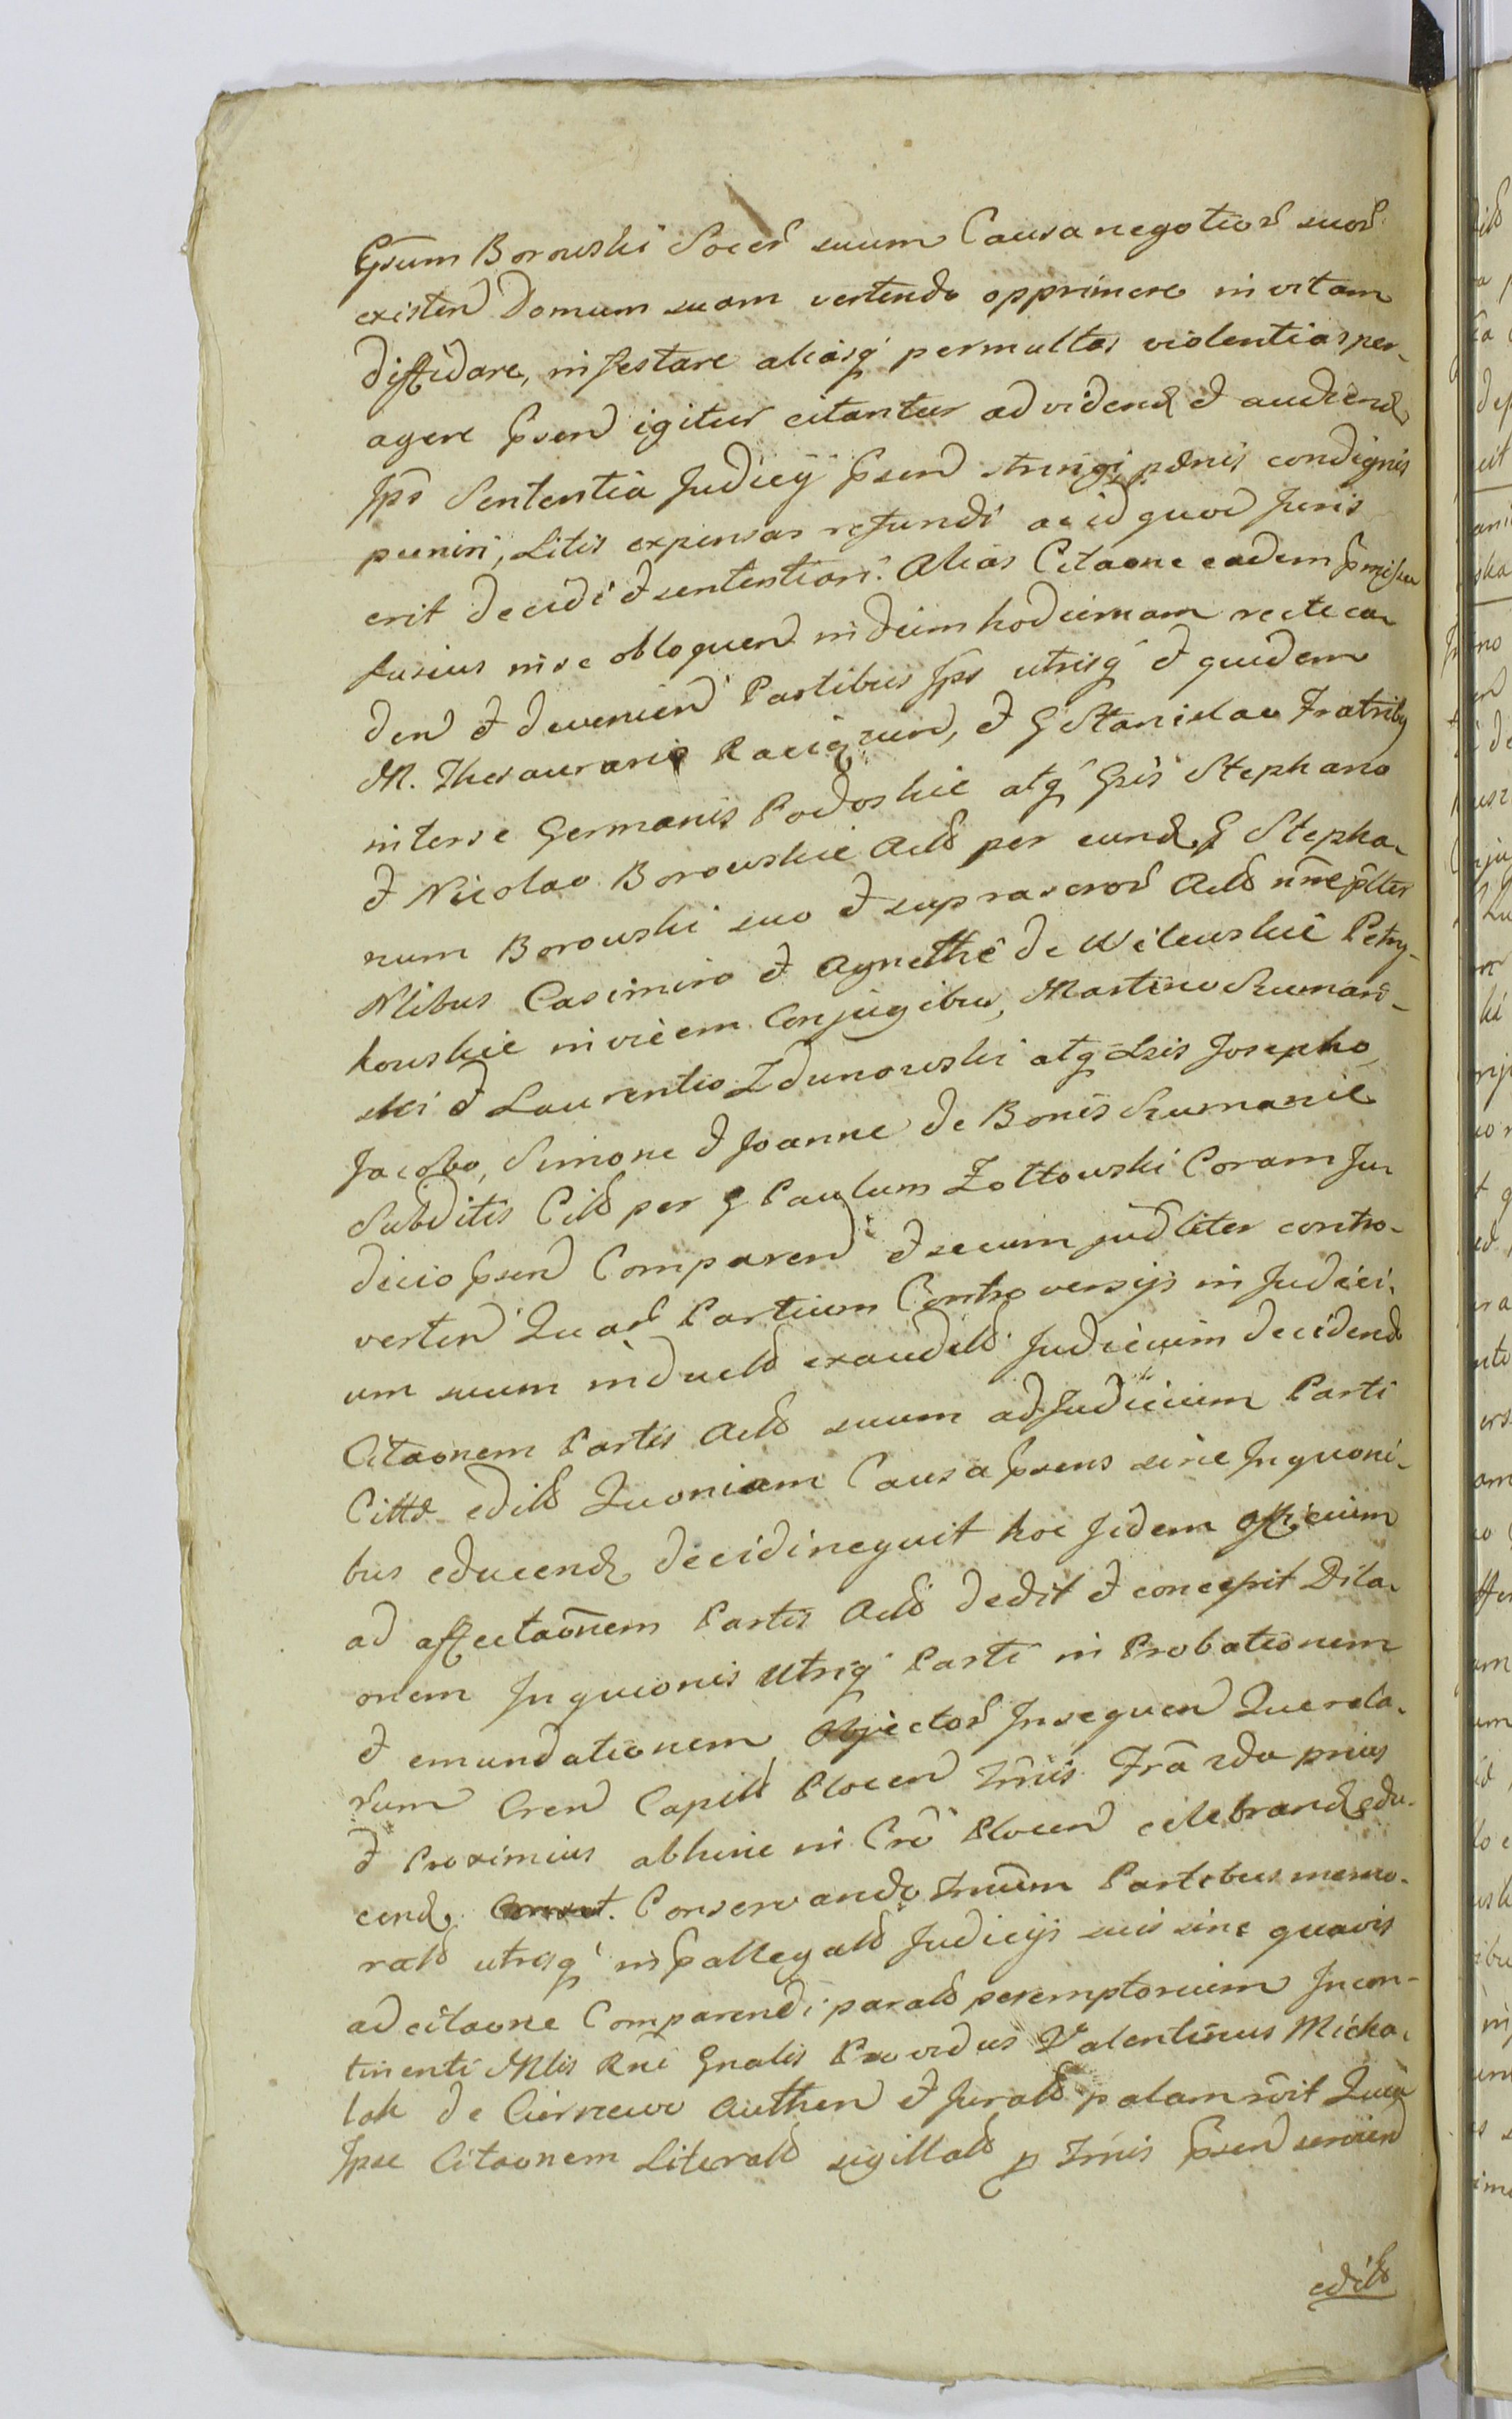 Gsum Borowski Socer suum Causa negotior suor
existen Domum suam vertendo opprimere in vitam
diffidare, infestare aliasq permultas violentias per-
agere psen igitur citantur ad vidend et audiend
Ips Sententia Judicij psen stringi pænis condignis
puniri, Litis expensas refundi ac id quod Juris
erit decidi et sententiari. Alias Citaone eadem pmissa
fusius in se obloquen in diem hodiernam recte ca-
den et devenien Partibus Ips utrisq et quidem
M. Thesaurario Raciązen, et G Stanislao Fratribus
inter se Germanis Podoskie atq Gsis Stephano
et Nicolao Borowskie Actb per eund G Stepha-
num Borowski suo et suprascror Actb nne pltes
Nlibus Casimiro et Agnethe de Wilewskie Petry-
kowskie invicem Conjugibus, Martino Szumań-
ski et Laurentio Zdunowski atq Lsis Josepho
Jacobo, Simone et Joanne de Bonis Szumanie
Subditis Citb per G Paulum Zołtowski Coram Ju-
dicio psen Comparen et secum judliter contro-
verten Quar Partium Controversijs in Judici-
um suum inductb exauditb Judicium decidend
Citaonem Partis Actb suum ad Judicium Parti
Citte editb Quoniam Causa psens sine Inquoni-
bus educend decidi nequit hoc Idem Officium
ad affectaonem Partis Actb dedit et concepit Dila-
onem Inquionis Utriq Parti in Probationem
et emundationem Objector Insequen Querela-
rum Cren Capitb Plocen Tmis Fra 2da prius
et Proximius abhinc in Cro Plocen celebrand edu-
cend. Conservando Tmum Partibus memo-
ratb utrisq in pallegatb Judicijs suis sine quavis
adcitaone Comparendi paratb peremptorium Incon-
tinenti Mtis Rni Gnalis Providus Valentinus Micha-
lak de Ciernewo Authen et Juratb palam rcvit Quia
Ipse Citaonem Literatb sigillatb p Tmis psen servien
editb